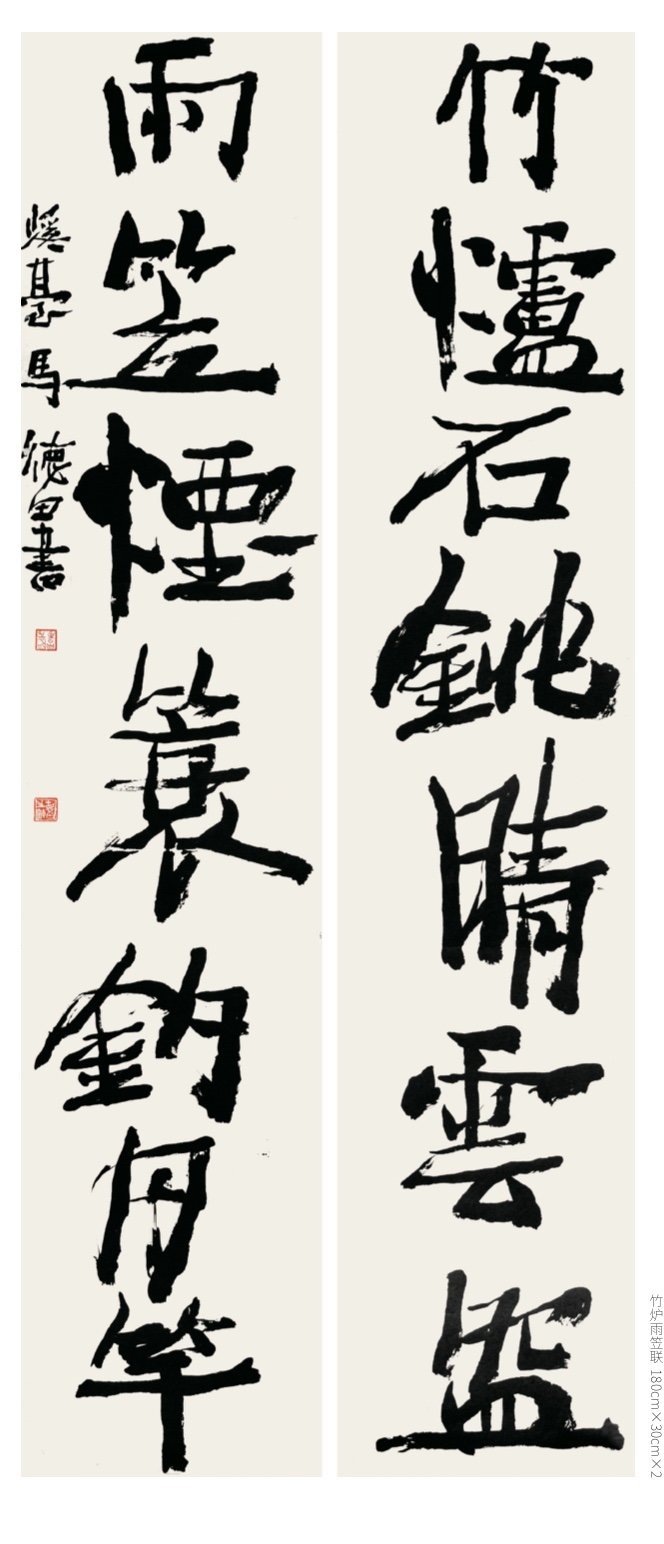 竹爐石銚晴雲盌
雨笠煙簑釣月竿
臺馬德田書
竹炉雨笠联 180cm×30cm×2